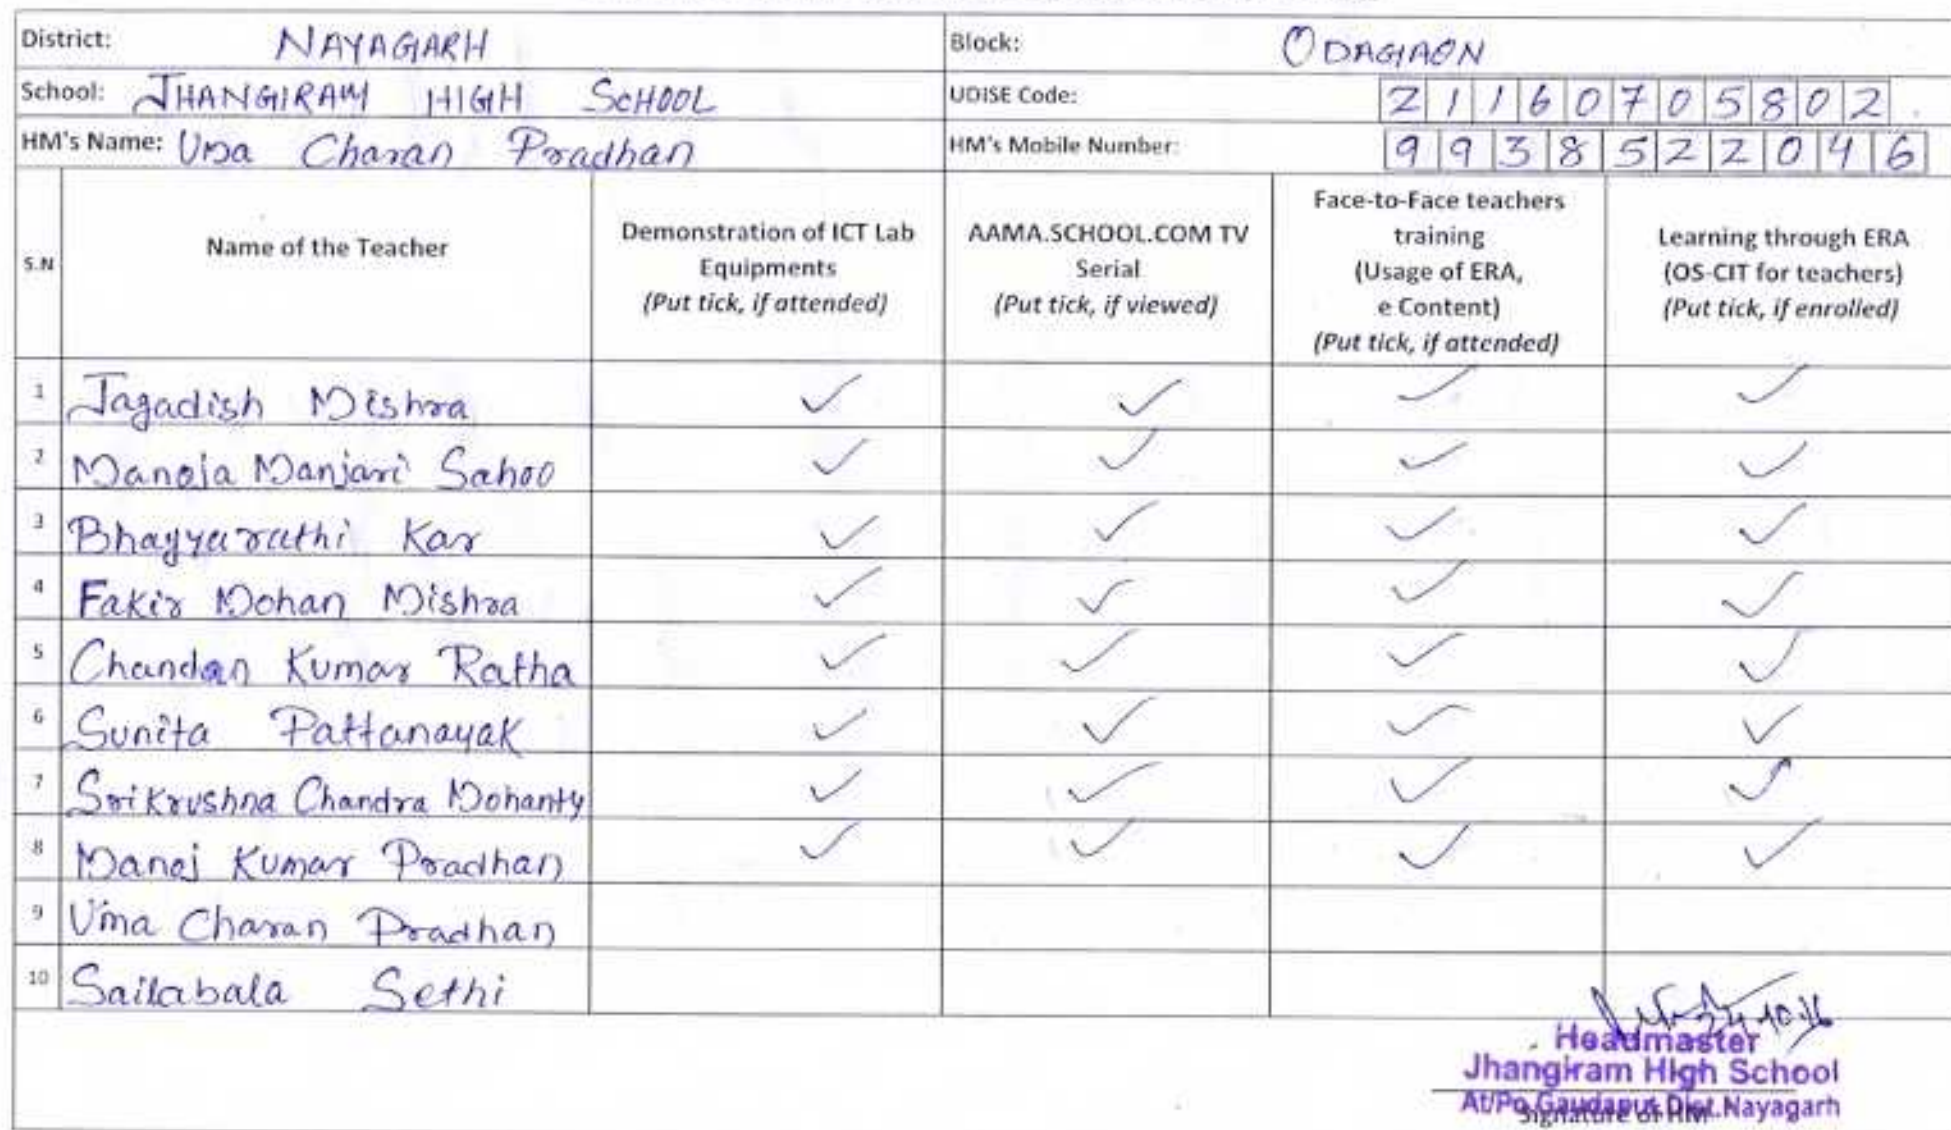 District: NAYAGARH Block: ODAGAON
School: JHANGIRAM HIGH SCHOOL UDISE Code: 21160705802
HM's Name: Uma Charan Pradhan HM's Mobile Number: 9938522046
S.N Name of the Teacher Demonstration of ICT Lab Equipments (Put tick, if attended) AAMA.SCHOOL.COM TV Serial (Put tick, if viewed) Face-to-Face teachers training (Usage of ERA, e Content) (Put tick, if attended) Learning through ERA (OS-CIT for teachers) (Put tick, if enrolled)
1 Jagadish Mishra ✓ ✓ ✓ ✓
2 Manoja Manjari Sahoo ✓ ✓ ✓ ✓
3 Bhagyarathi Kar ✓ ✓ ✓ ✓
4 Fakir Mohan Mishra ✓ ✓ ✓ ✓
5 Chandan Kumar Ratha ✓ ✓ ✓ ✓
6 Sunita Pattanayak ✓ ✓ ✓ ✓
7 Srikrushna Chandra Mohanty ✓ ✓ ✓ ✓
8 Manoj Kumar Pradhan ✓ ✓ ✓ ✓
9 Uma Charan Pradhan
10 Sailabala Sethi
24.10.16
Headmaster
Jhangiram High School
At/Po Gaudaput Dist. Nayagarh
Signature of HM